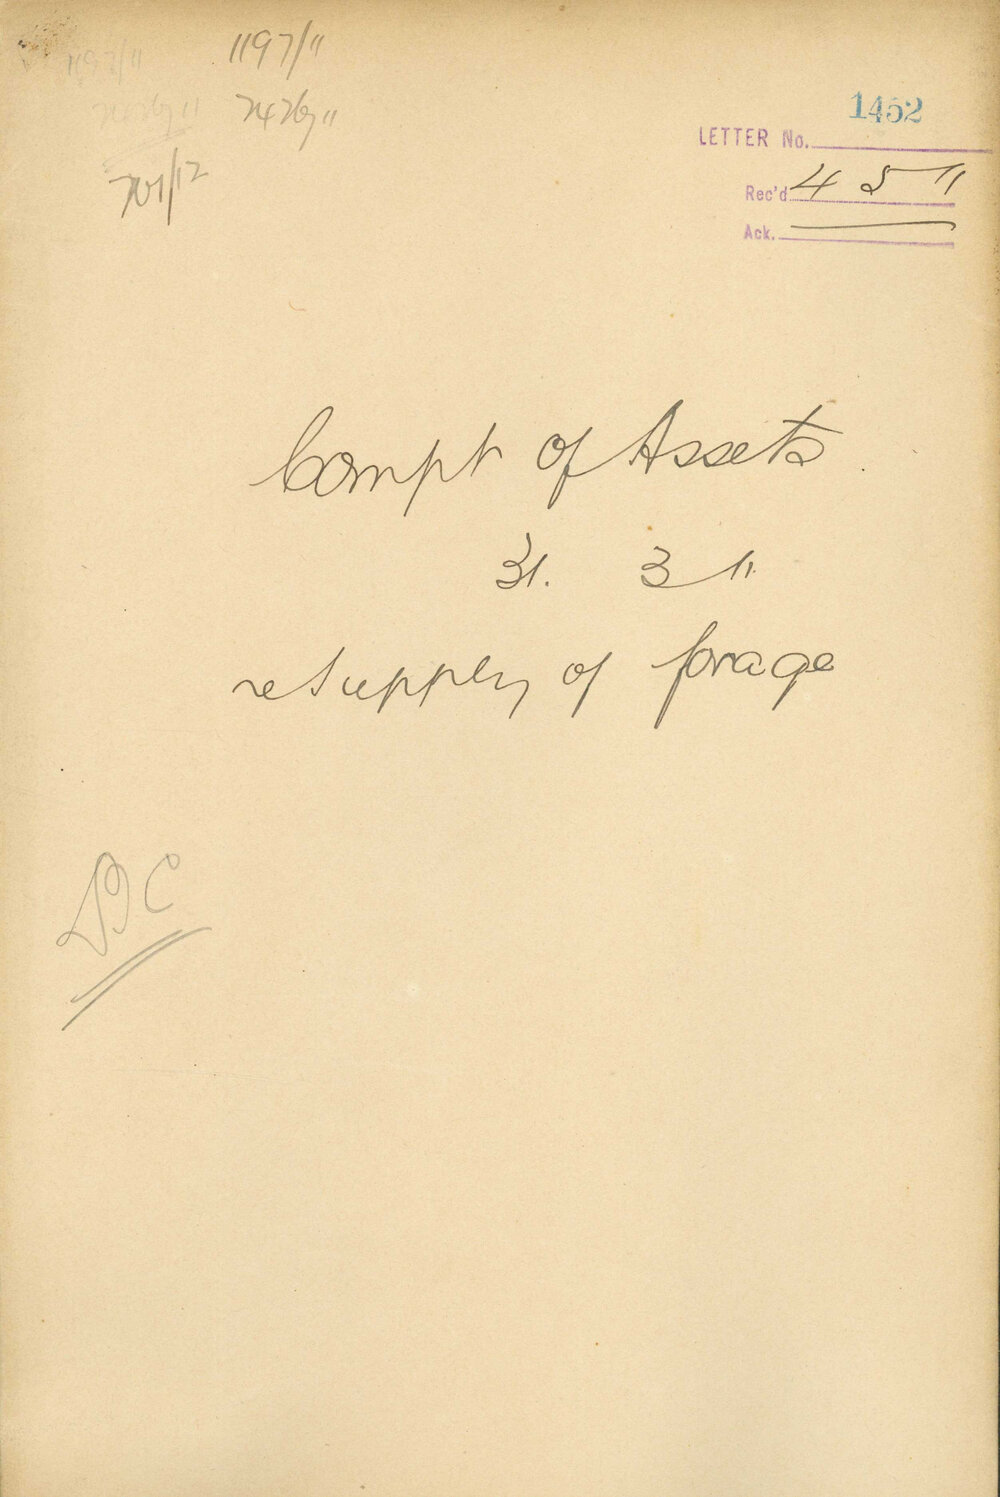 1197/11
1197/11
701/12
1452
LETTER No.
Rec'd 4 5 11
Ack.
Compt of Assets
31. 3 11
re supply of forage